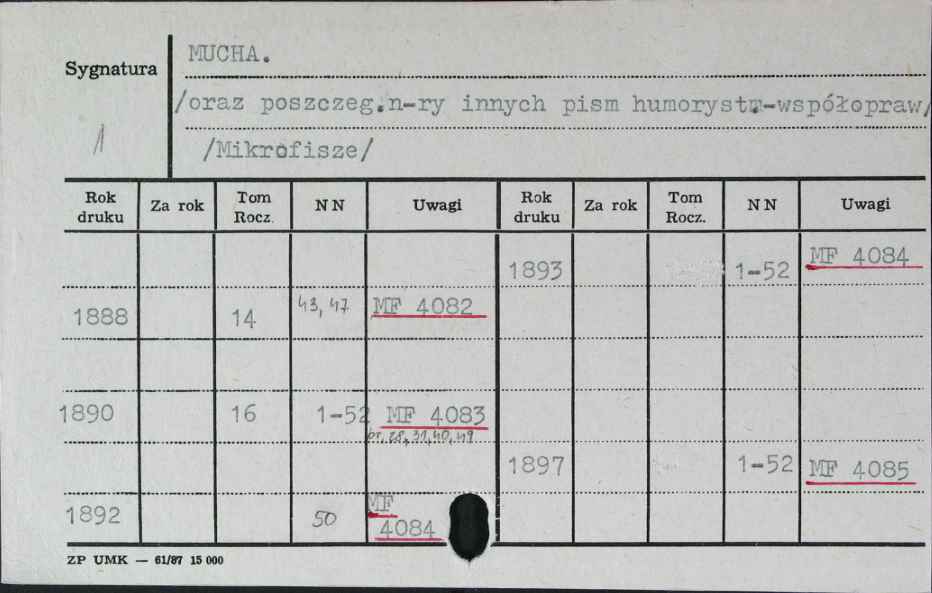 MUCHA.
Sygnatura
/oraz poszczeg.n-ry innych pism humorystr-współopraw/
1
/Mikrofisze/
Rok druku Za rok Tom Rocz. NN Uwagi Rok druku Za rok Tom Rocz. NN Uwagi
1893 1-52 MF 4084
1888 14 43, 47 MF 4082
1890 16 1-52 MF 4083
br. 28, 31, 40, 49
1897 1-52 MF 4085
1892 50 MF 4084
ZP UMK — 61/87 15 000